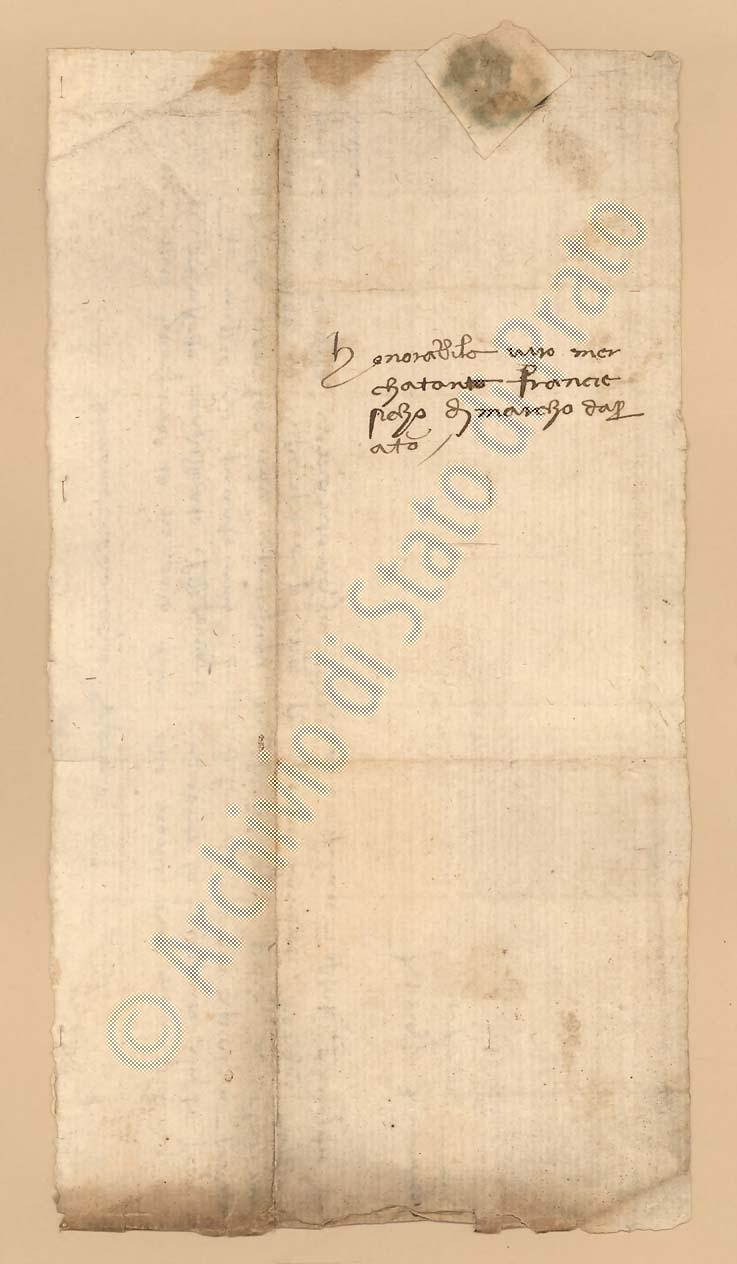 honorabile viro mer
chatante francie
sicho di marcho dapr
ato
© Archivio di Stato di Prato